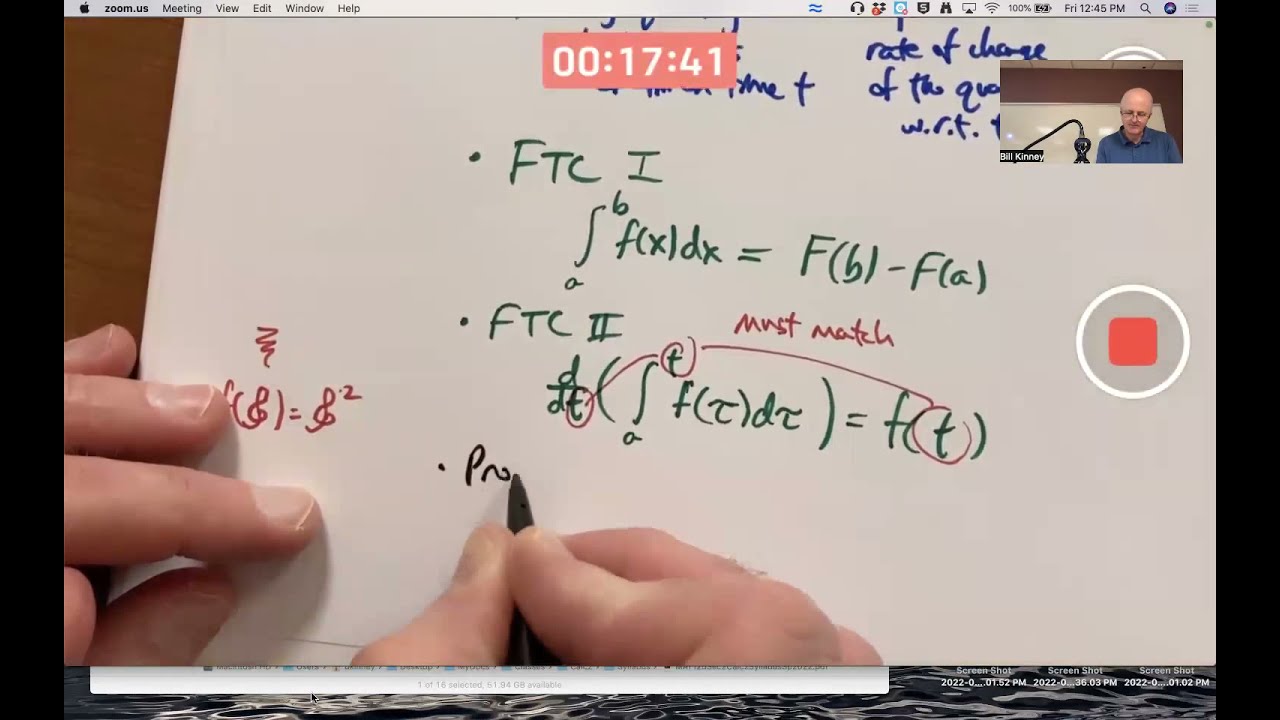 zoom.us Meeting View Edit Window Help 100% Fri 12:45 PM
00:17:41
time t
rate of change
of the
w.r.t.
Bill Kinney
• FTC I
∫_a^b f(x)dx = F(b) - F(a)
• FTC II
must match
d/dt (∫_a^t f(τ)dτ) = f(t)
• Pro
1 of 16 selected, 51.94 GB available
Screen Shot Screen Shot Screen Shot
2022-0....01.52 PM 2022-0...36.03 PM 2022-0....01.02 PM